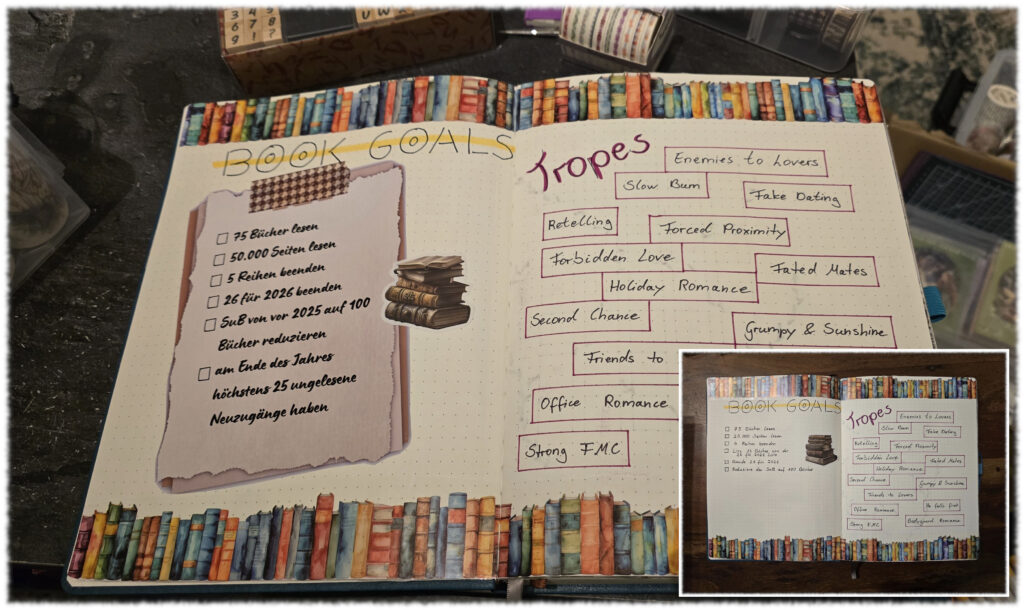 3 4 7
6 7 8
9 !
U W
BOOK GOALS
75 Bücher lesen
50.000 Seiten lesen
5 Reihen beenden
26 für 2026 beenden
SuB von vor 2025 auf 100
Bücher reduzieren
am Ende des Jahres
höchstens 25 ungelesene
Neuzugänge haben
Tropes
Enemies to Lovers
Slow Burn
Fake Dating
Retelling
Forced Proximity
Forbidden Love
Fated Mates
Holiday Romance
Second Chance
Grumpy & Sunshine
Friends to
Office Romance
Strong FMC
BOOK GOALS
75 Bücher lesen
25.000 Seiten lesen
beenden
Reduziere den SuB auf 100 Bücher
Tropes
Enemies to Lovers
Slow Burn
Fake Dating
Retelling
Forced Proximity
Forbidden Love
Fated Mates
Holiday Romance
Second Chance
Grumpy & Sunshine
Friends to Lovers
He falls first
Office Romance
Strong FMC
Background Romance